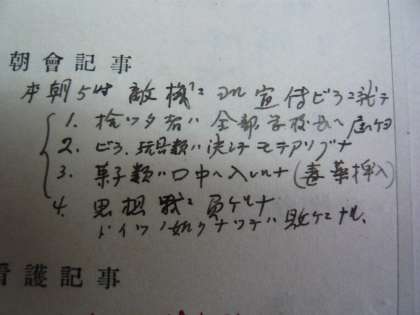 朝會記事
本朝5時 敵機ニヨル宣傳ビラニ就テ
1. 拾ッタ者ハ全部学校長ヘ届ケヨ
2. ビラ、玩具類ハ決シテモテアソブナ
3. 菓子類ハ口中ヘ入レルナ(毒薬挿入)
4. 思想戰ニ負ケルナ
ドイツノ如クナッテハ敗ケニナル、
看護記事